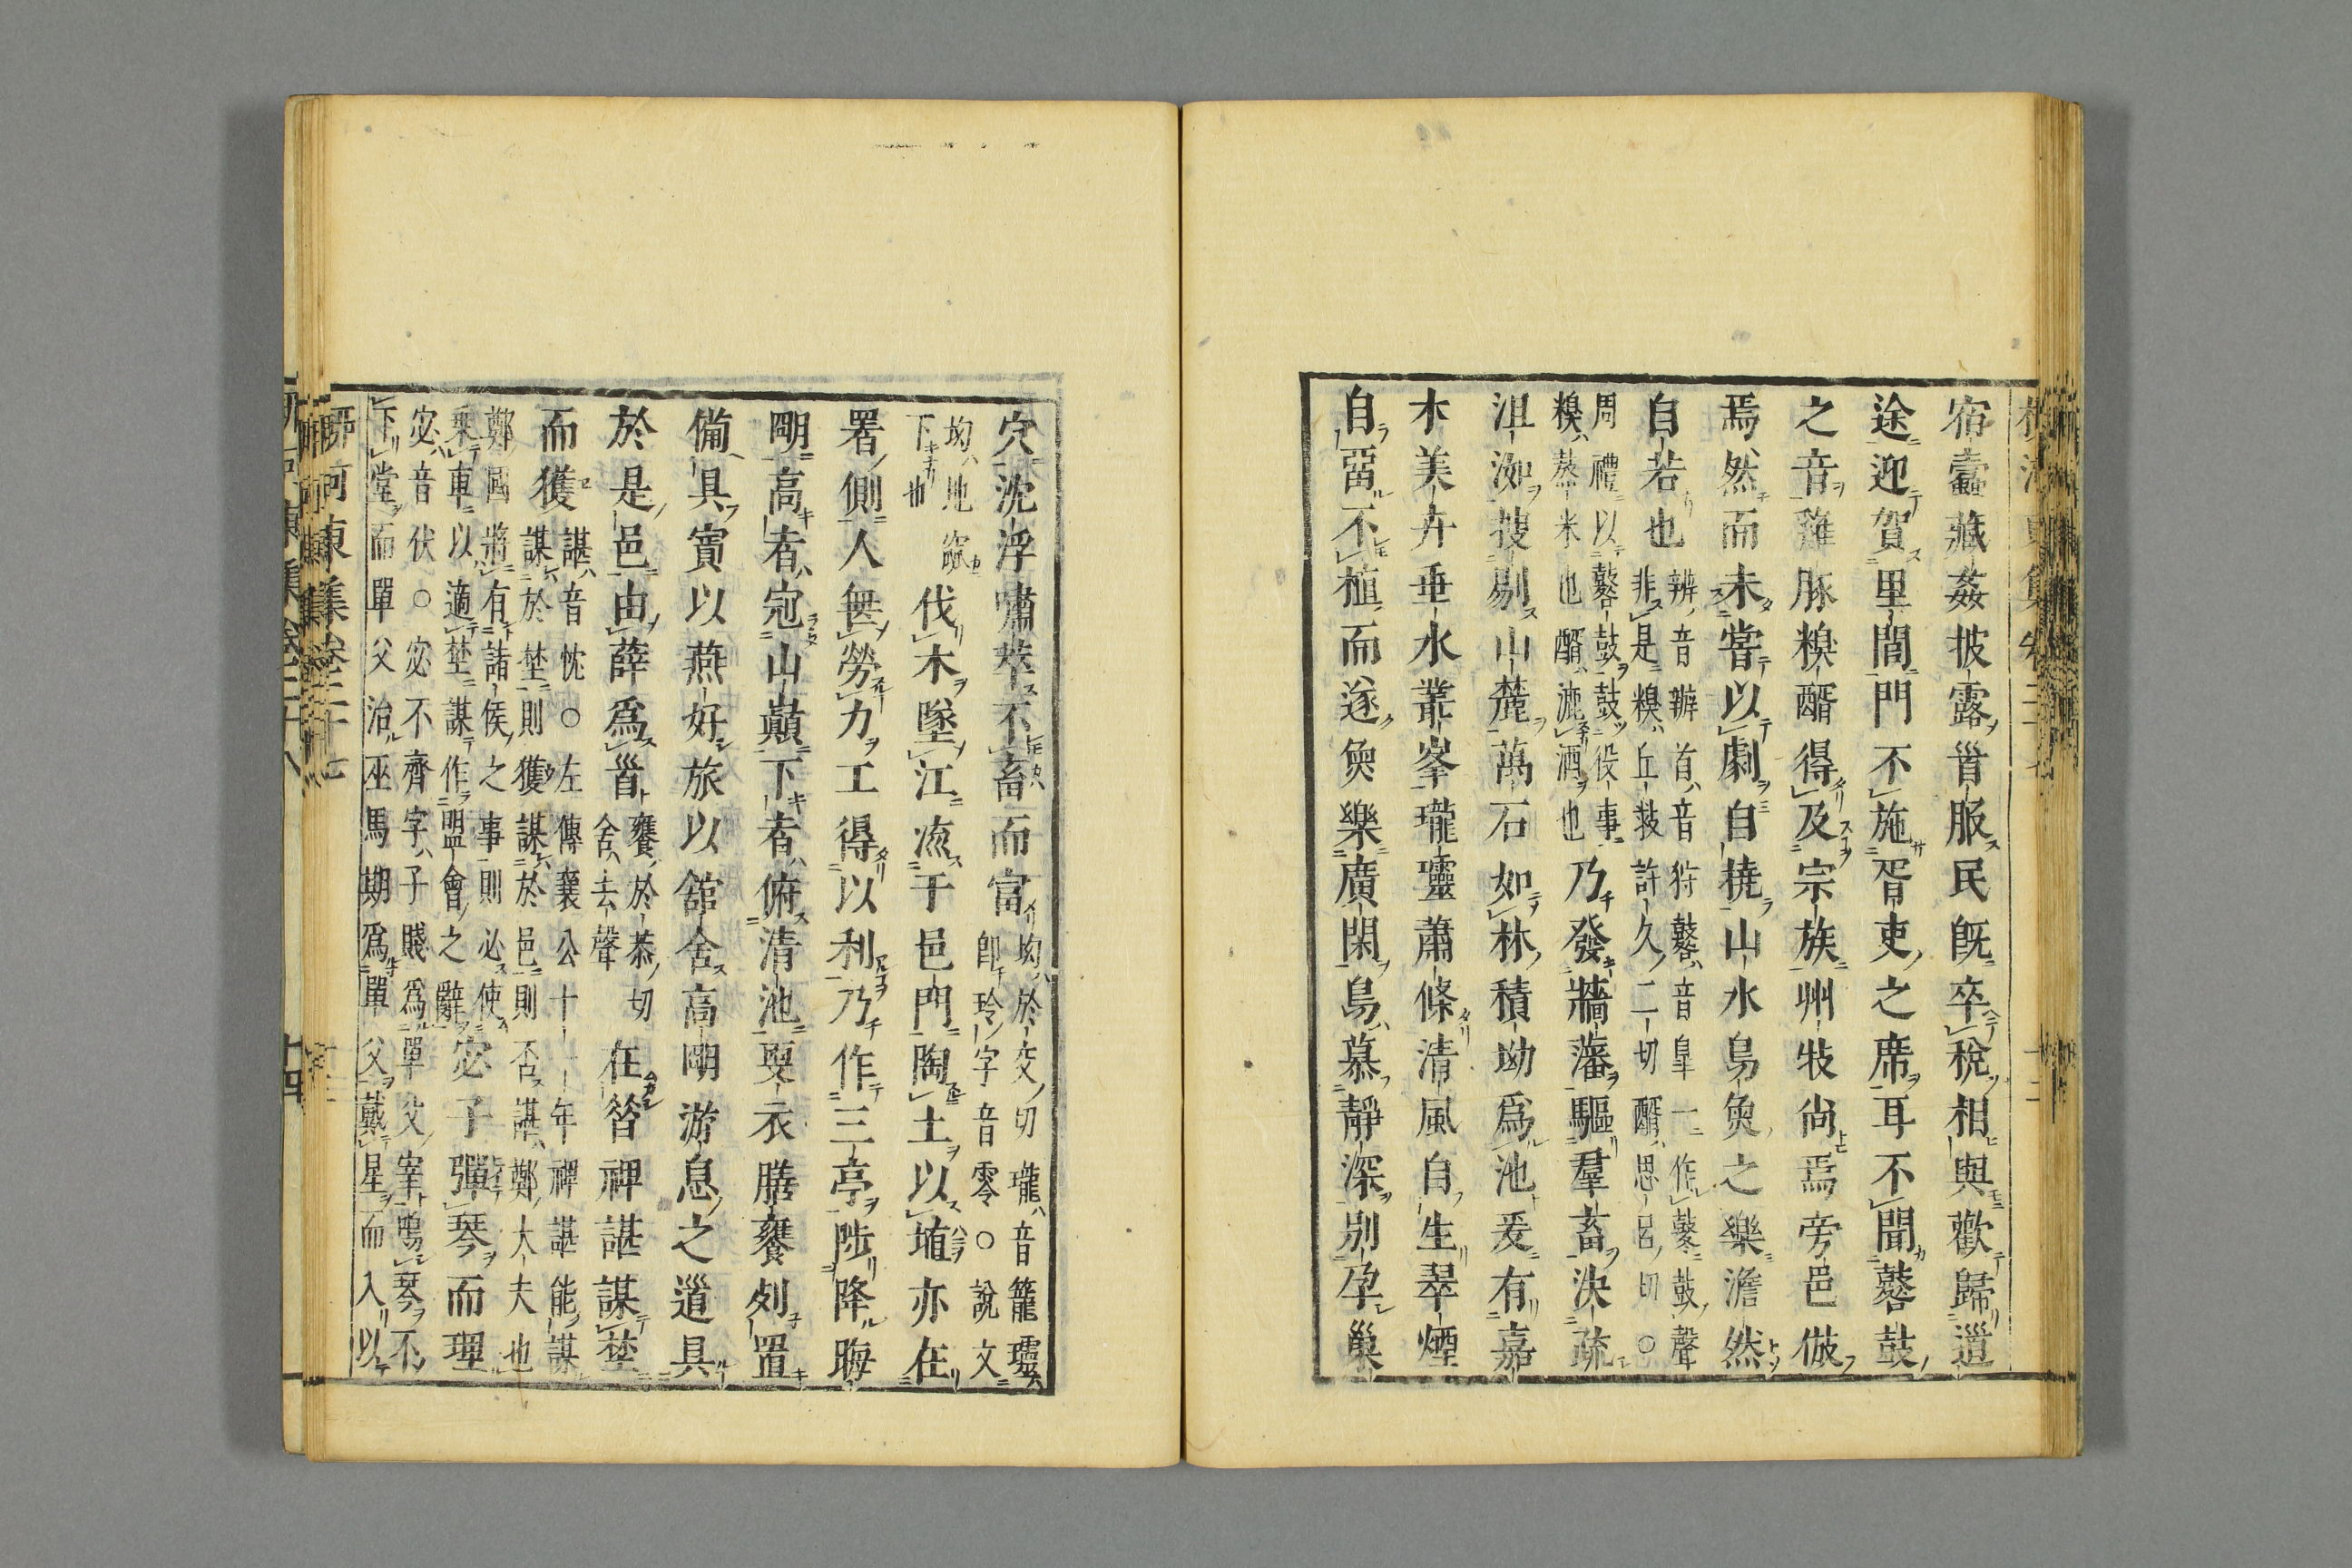 宿蠹藏姦披露首服民旣卒稅相與歡歸道
途迎賀里閭門不施胥吏之席耳不聞鼛鼓
之音雞豚糗醑得及宗族州牧尚焉旁邑倣
焉然而未嘗以劇自撓山水鳥魚之樂澹然
自若也
辨音辦首音狩鼛音皐一作鼕鼓聲
非是糗丘救許久二切醑思呂切○
周禮以鼛鼓鼓役事
糗蒸米也醑漉酒也
乃發牆藩驅羣畜決疏
沮洳搜剔山麓萬石如林積坳爲池爰有嘉
木美卉垂水叢峯瓏靈蕭條清風自生翠煙
自留不植而遂魚樂廣閑鳥慕靜深别孕巢
穴沈浮嘯萃不畜而富
坳於交切瓏音籠靈
卽玲字音零○說文
坳地窊
下也
伐木墜江流于邑門陶土以埴亦在
署側人無勞力工得以利乃作三亭陟降晦
明高者冠山顚下者俯清池更衣膳饔列置
備具賓以燕好旅以舘舍高明游息之道具
於是邑由薛爲首
饔於恭切
舍去聲
在昔裨諶謀埜
而獲
諶音忱○左傳襄公十一年裨諶能謀
謀於埜則獲謀於邑則否諶鄭大夫也
鄭國將有諸侯之事則必使
乘車以適埜謀作盟會之辭
宓子彈琴而理
宓音伏○宓不齊字子賤爲單父宰鳴琴不
下堂而單父治巫馬期爲單父戴星而入以
柳河東集卷二十七